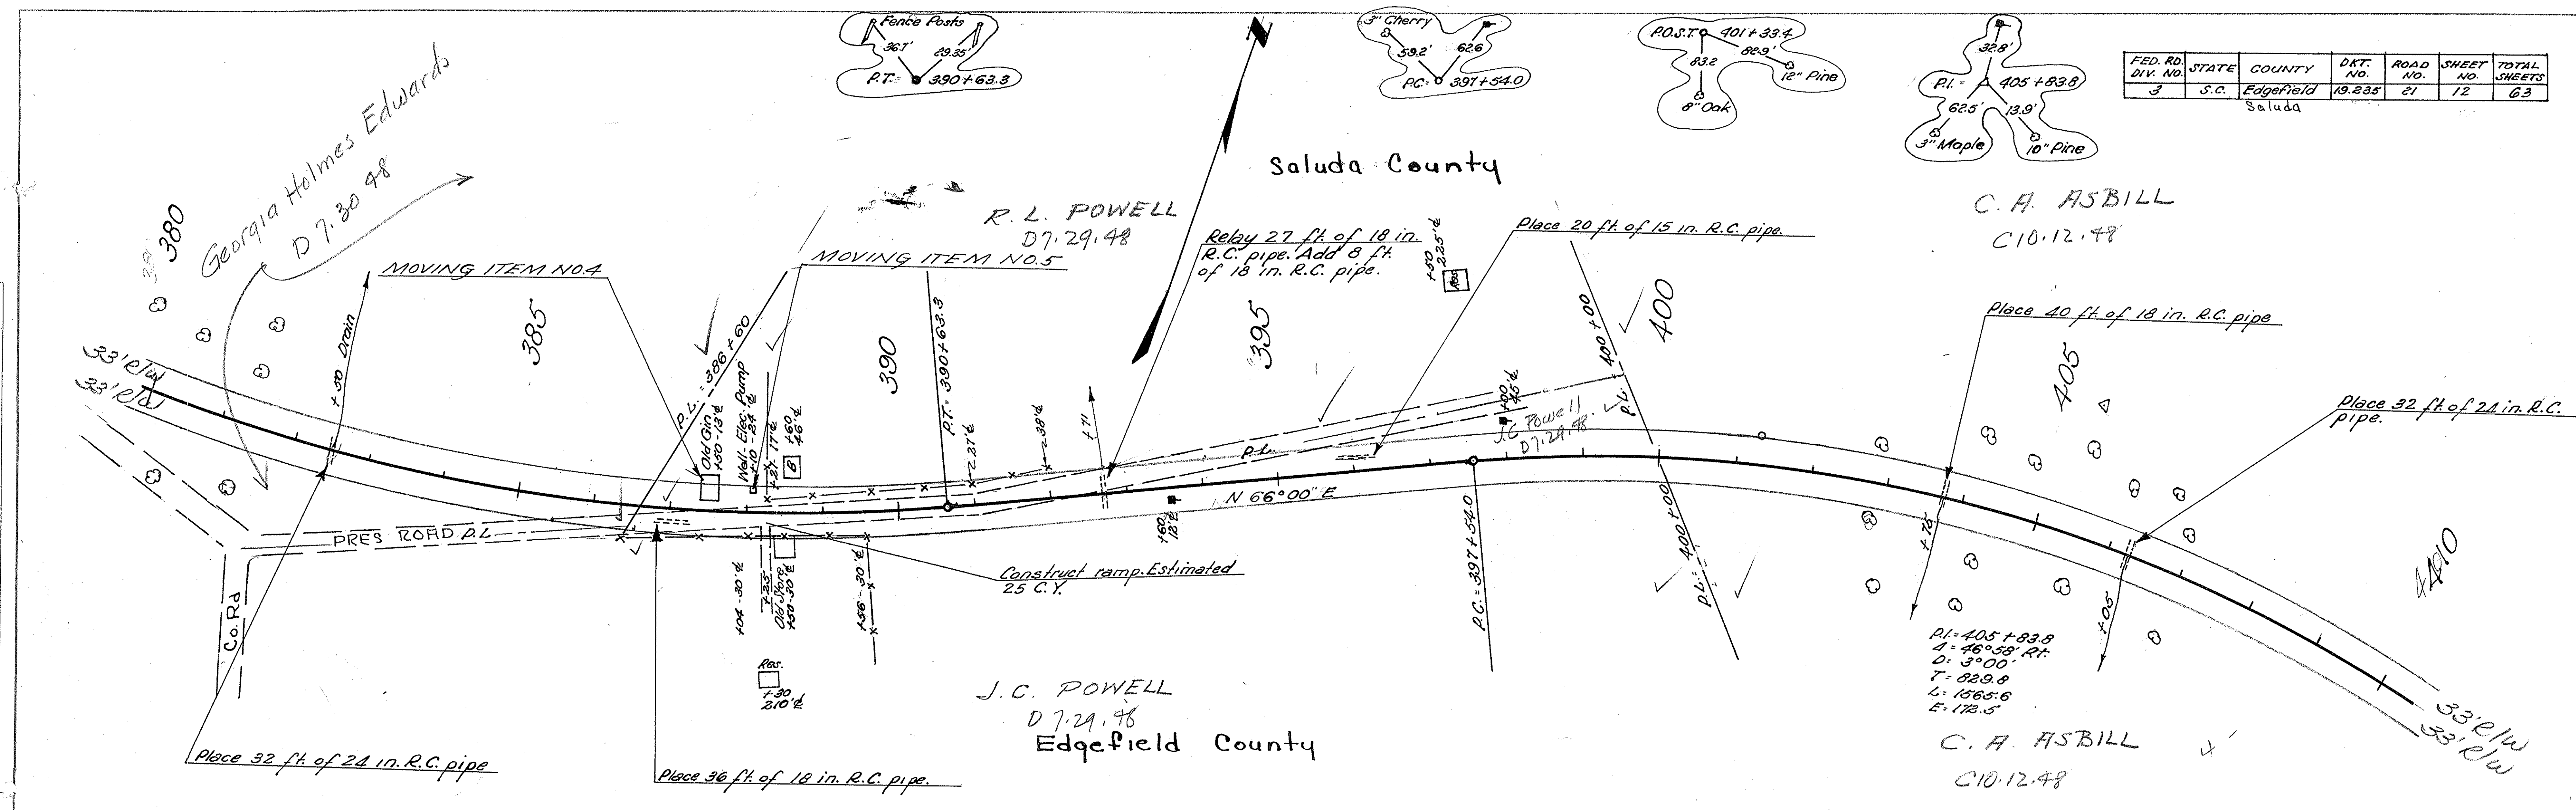 Fence Posts
36.7'
29.35'
P.T. = 390+63.3
3" Cherry
59.2'
62.6
P.C. = 397+54.0
P.O.S.T. 401+33.4
83.2
82.9'
12" Pine
8" Oak
32.8'
P.I. = 405+83.8
62.5'
13.9'
3" Maple
10" Pine
FED. RD. DIV. NO. STATE COUNTY DKT. NO. ROAD NO. SHEET NO. TOTAL SHEETS
3 S.C. Edgefield 19.235 21 12 63
Saluda
N
Saluda County
Georgia Holmes Edwards
D 7.30.48
R. L. POWELL
D7.29.48
C. A. ASBILL
C10.12.48
380
385
390
395
400
405
410
MOVING ITEM NO.4
MOVING ITEM NO.5
Relay 27 ft. of 18 in.
R.C. pipe. Add 8 ft.
of 18 in. R.C. pipe.
Place 20 ft. of 15 in. R.C. pipe.
Place 40 ft. of 18 in. R.C. pipe
Place 32 ft. of 24 in. R.C.
pipe.
+50
225'℄
Res.
33' R/W
33' R/W
+30 Drain
P.L. = 386+60
Old Gin
+50-13'℄
Well-Elec. Pump
+10-24'℄
+27 17'℄
+60
46'℄
B
P.T. = 390+63.3
22'℄
38'℄
+71
P.L.
+00
45'℄
J.C. Powell
D7.29.48
P.L. 400+00
N 66°00" E
+60
12'℄
PRES ROAD P.L.
Co. Rd
+04-30'℄
+25
Old Store
+50-30'℄
+56-30'℄
Construct ramp. Estimated
25 C.Y.
P.C. = 397+54.0
P.L. = 400+00
+75
+05
Res.
+30
210'℄
P.I. = 405+83.8
Δ = 46°58' Rt.
D = 3°00'
T = 829.8
L = 1565.6
E = 172.5
J. C. POWELL
D 7.29.48
Edgefield County
C. A. ASBILL
C10.12.48
33' R/W
33' R/W
Place 32 ft. of 24 in. R.C. pipe
Place 36 ft. of 18 in. R.C. pipe.